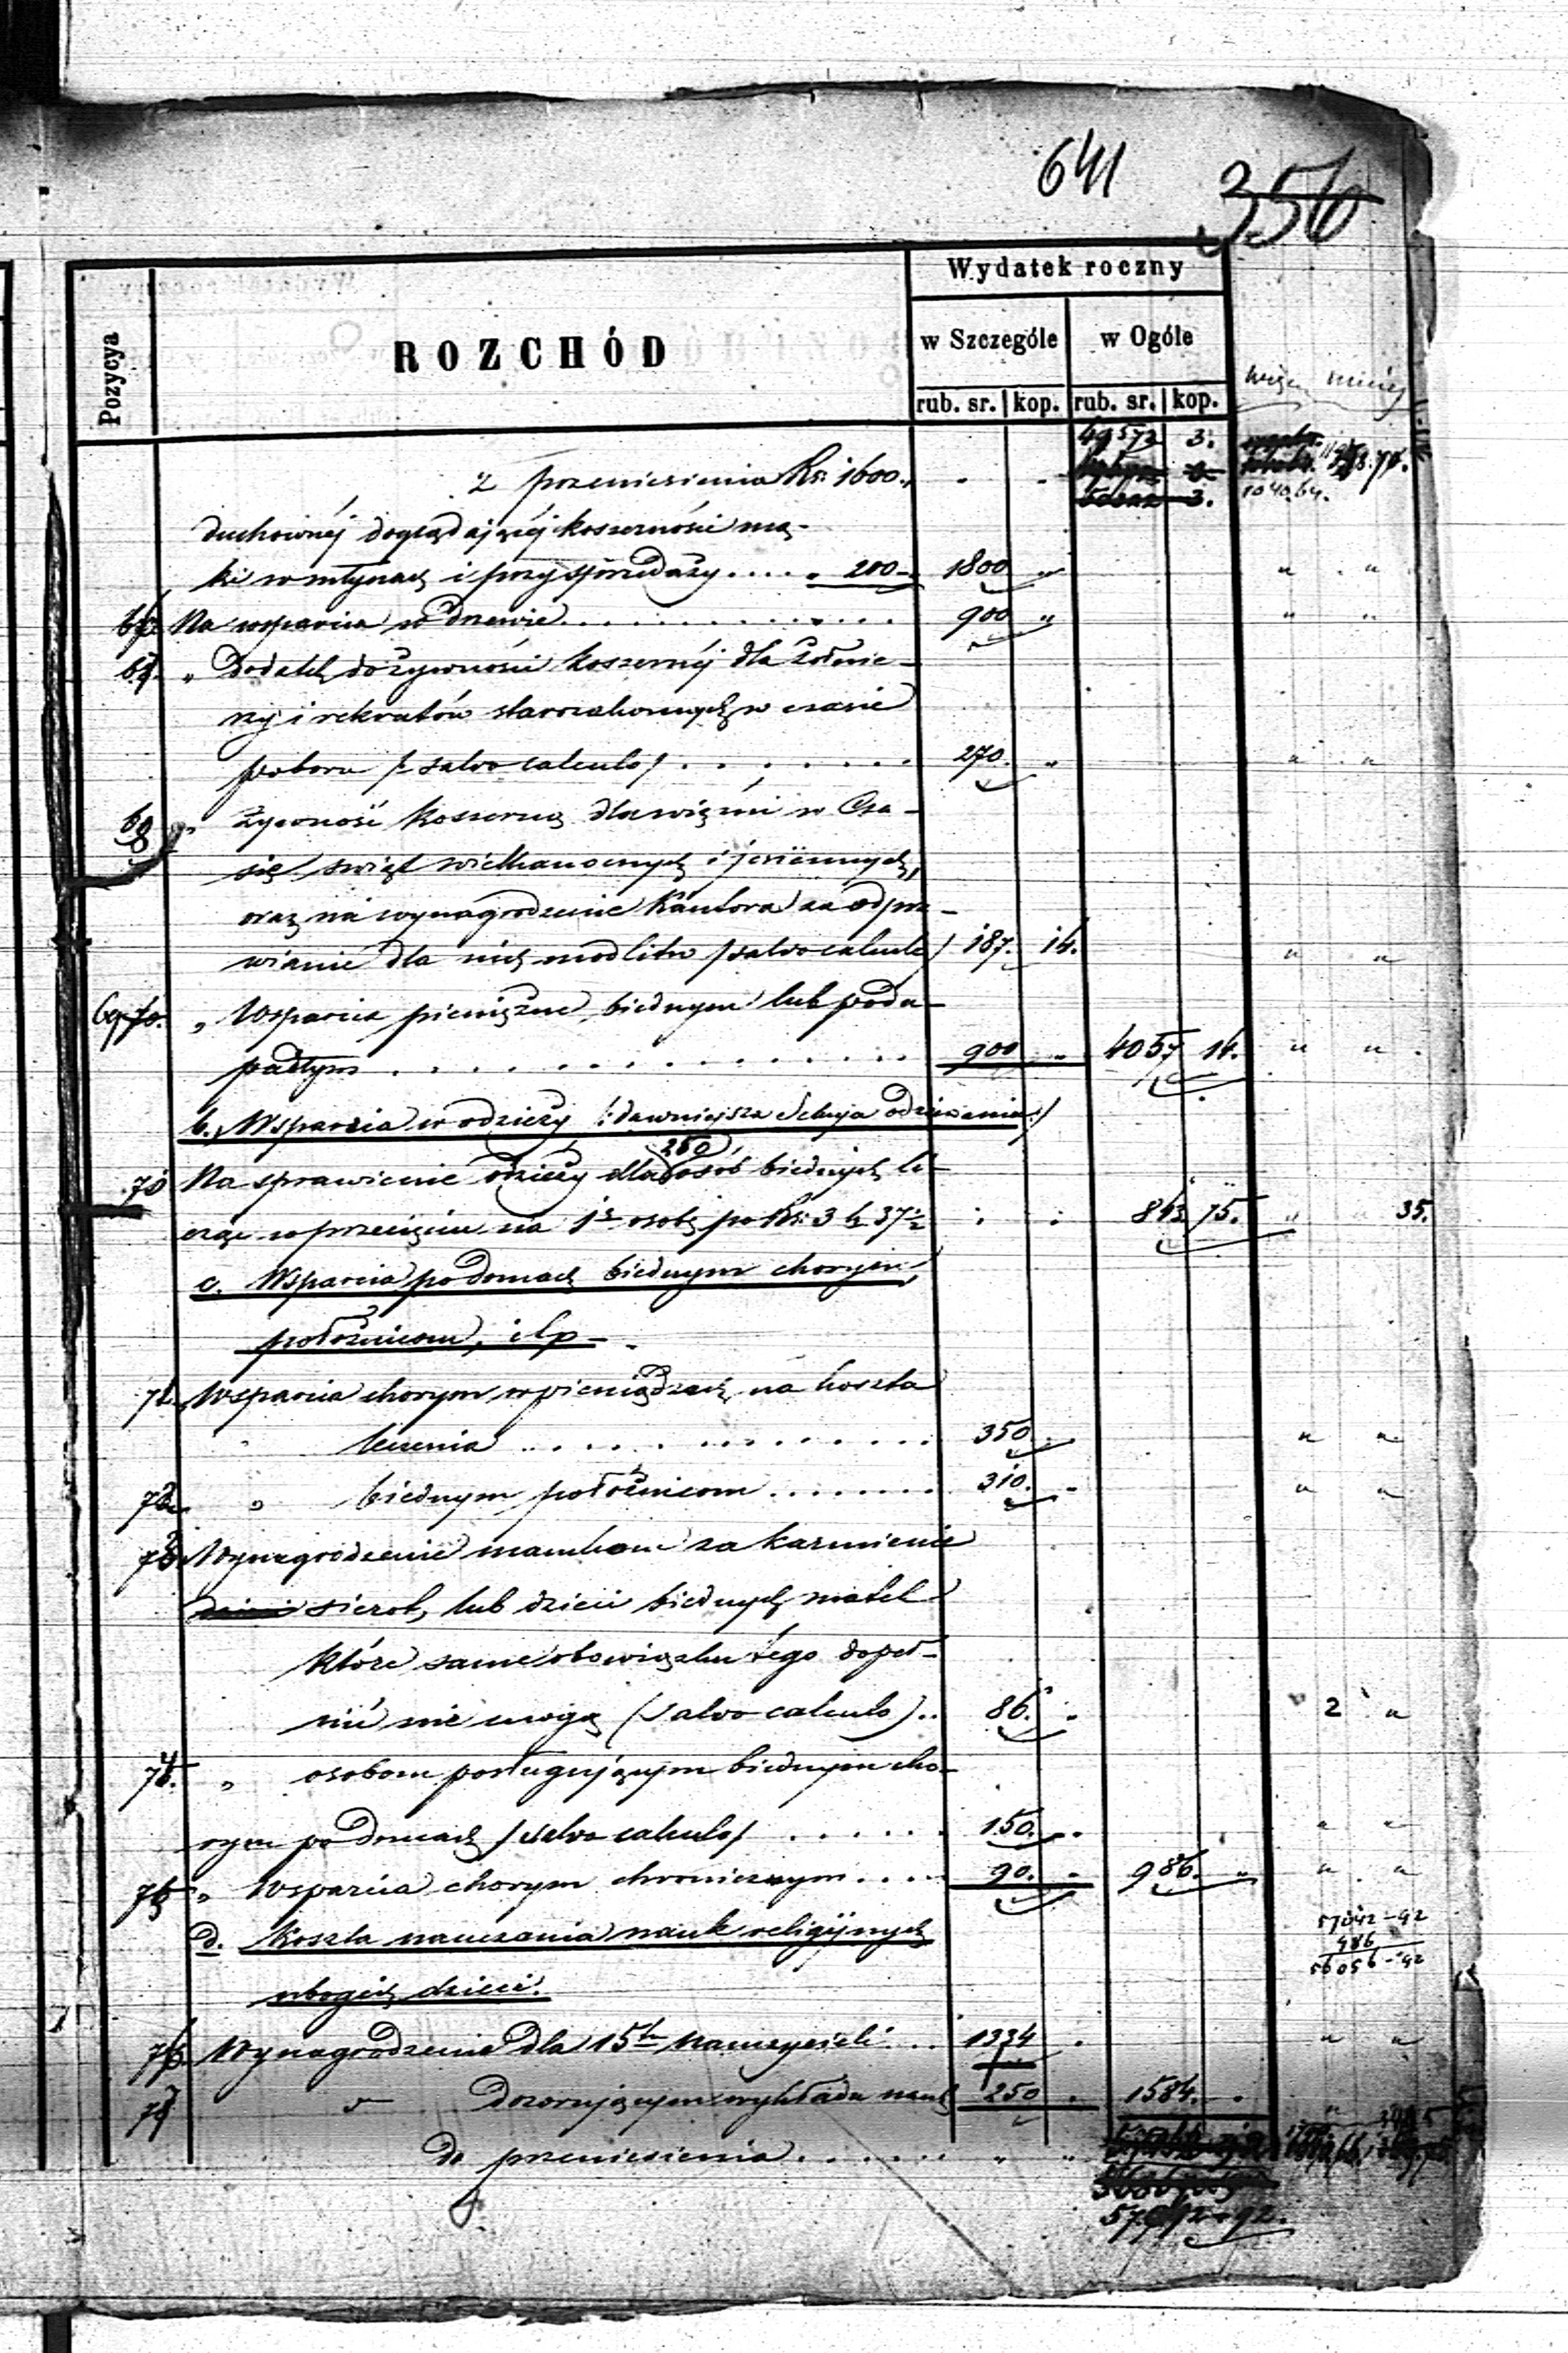 641
356
Pozycya
ROZCHÓD
Wydatek roczny
w Szczególe w Ogóle
rub. sr. kop. rub. sr. kop.
więcej mniej
49573 3.
z przeniesienia Rs. 1600.
1040.64.
duchownéj doglądającéj koszerności mą-
ki w młynach i przy sprzedaży.... " 200- 1800 " " "
Na wsparcia w drzewie............ 900 " " "
" Dodatek do żywności koszernéj dla żołnie-
rzy i rekrutów starozakonnych w czasie
poboru /: salvo calculo/ ........ 270. " " "
" Żywność koszerną dla więźni w Cza-
się świąt wielkanocnych i jesiennych,
oraz na wynagrodzenie Kantora za odpra-
wianie dla nich modlitw /salvo calculo/ 187. 14. " "
69 70. " Wsparcia pieniężne biednym lub podu-
padłym ............ 900 " 4057 14. " "
b. Wsparcia w odzieży /: dawniejsza Sekcja odziewania:/
250
70 Na sprawienie odzieży dla osób biednych li-
cząc w przecięciu na 1ą osobę po Rs. 3 k. 37½ 843 75. " 35.
c. Wsparcia po domach biednym chorym,
położnicom, i t.p.-
71. Wsparcia chorym w pieniądzach na koszta
leczenia .............. 350. " "
72 " biednym położnicom ........ 310. " " "
73 Wynagrodzenie mamkom za karmienie
sierot, lub dzieci biednych matek
które same obowiązku tego dopeł-
nić nie mogą (salvo calculo).. 86. " 2 "
74. " osobom posługującym biednym cho-
rym po domach /salvo calculo/ ...... 150. " " "
75 " Wsparcia chorym chronicznym.... 90. " 986. " " "
57042-92
986
56056-92
d. Koszta nauczania nauk religijnych
ubogich dzieci.
76 Wynagrodzenie dla 15tu Nauczycieli... 1334 " " "
77 " Dozorującym wykładu nauk 250 " 1584. "
do przeniesienia...... " "
57042.92.